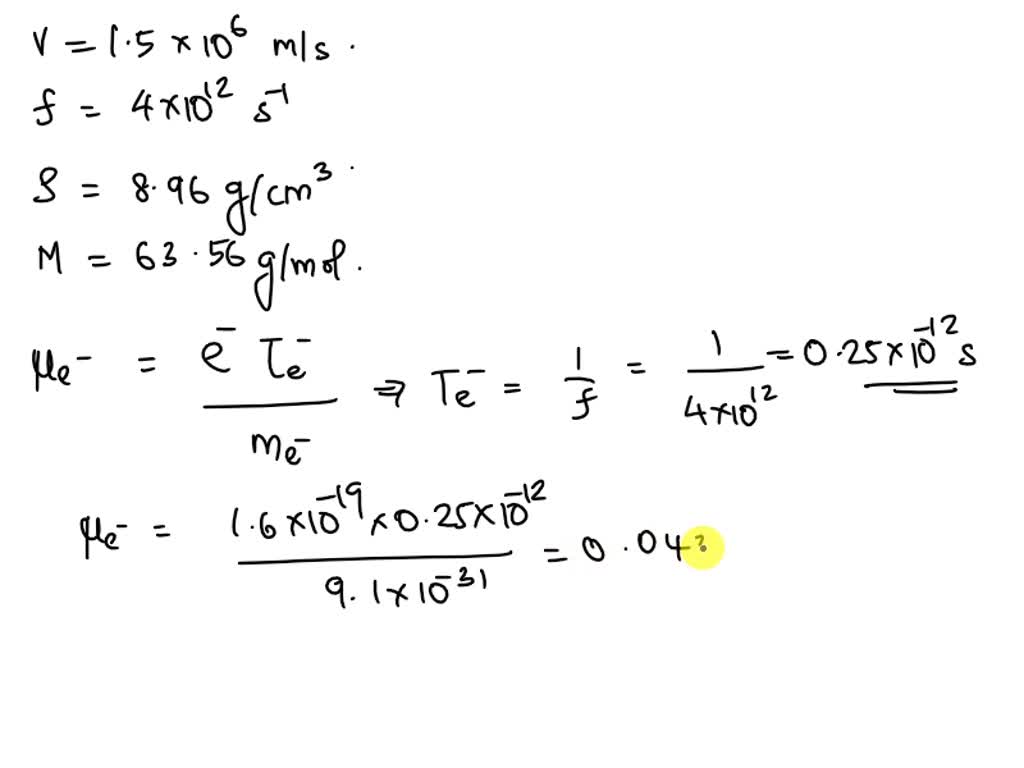 V = 1.5 × 10⁶ m/s .
f = 4×10¹² s⁻¹
S = 8.96 g/cm³ .
M = 63.56 g/mol .
μe⁻ = e⁻ τe⁻ / me⁻ ⇒ τe⁻ = 1/f = 1 / 4×10¹² = 0.25×10⁻¹² s
μe⁻ = 1.6×10⁻¹⁹ × 0.25×10⁻¹² / 9.1×10⁻³¹ = 0.04